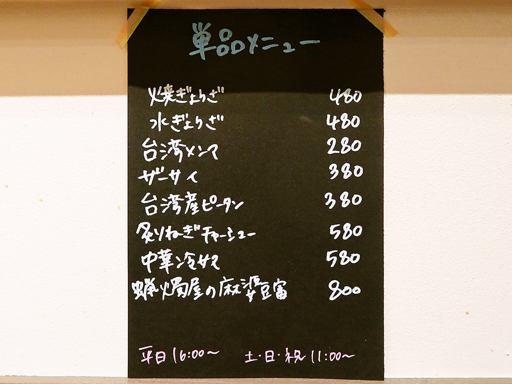 単品メニュー
焼ぎょうざ 480
水ぎょうざ 480
台湾メンマ 280
ザーサイ 380
台湾産ピータン 380
炙りねぎチャーシュー 580
中華冷サラ 580
蝋燭屋の麻婆豆富 800
平日16:00〜 土・日・祝11:00〜